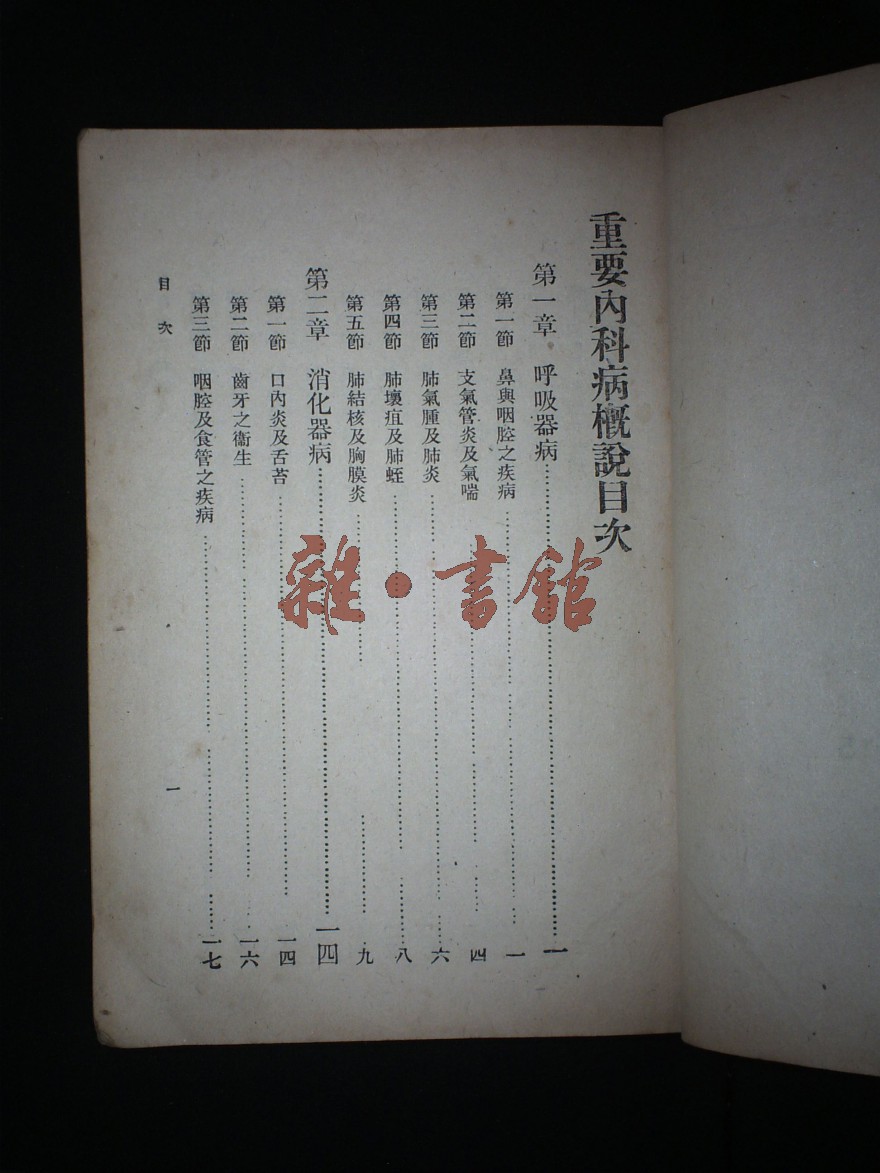 重要內科病概說目次
第一章 呼吸器病……一
第一節 鼻與咽腔之疾病……一
第二節 支氣管炎及氣喘……四
第三節 肺氣腫及肺炎……六
第四節 肺壞疽及肺蛭……八
第五節 肺結核及胸膜炎……九
第二章 消化器病……一四
第一節 口內炎及舌苔……一四
第二節 齒牙之衞生……一六
第三節 咽腔及食管之疾病……一七
目次
一
雜·書館